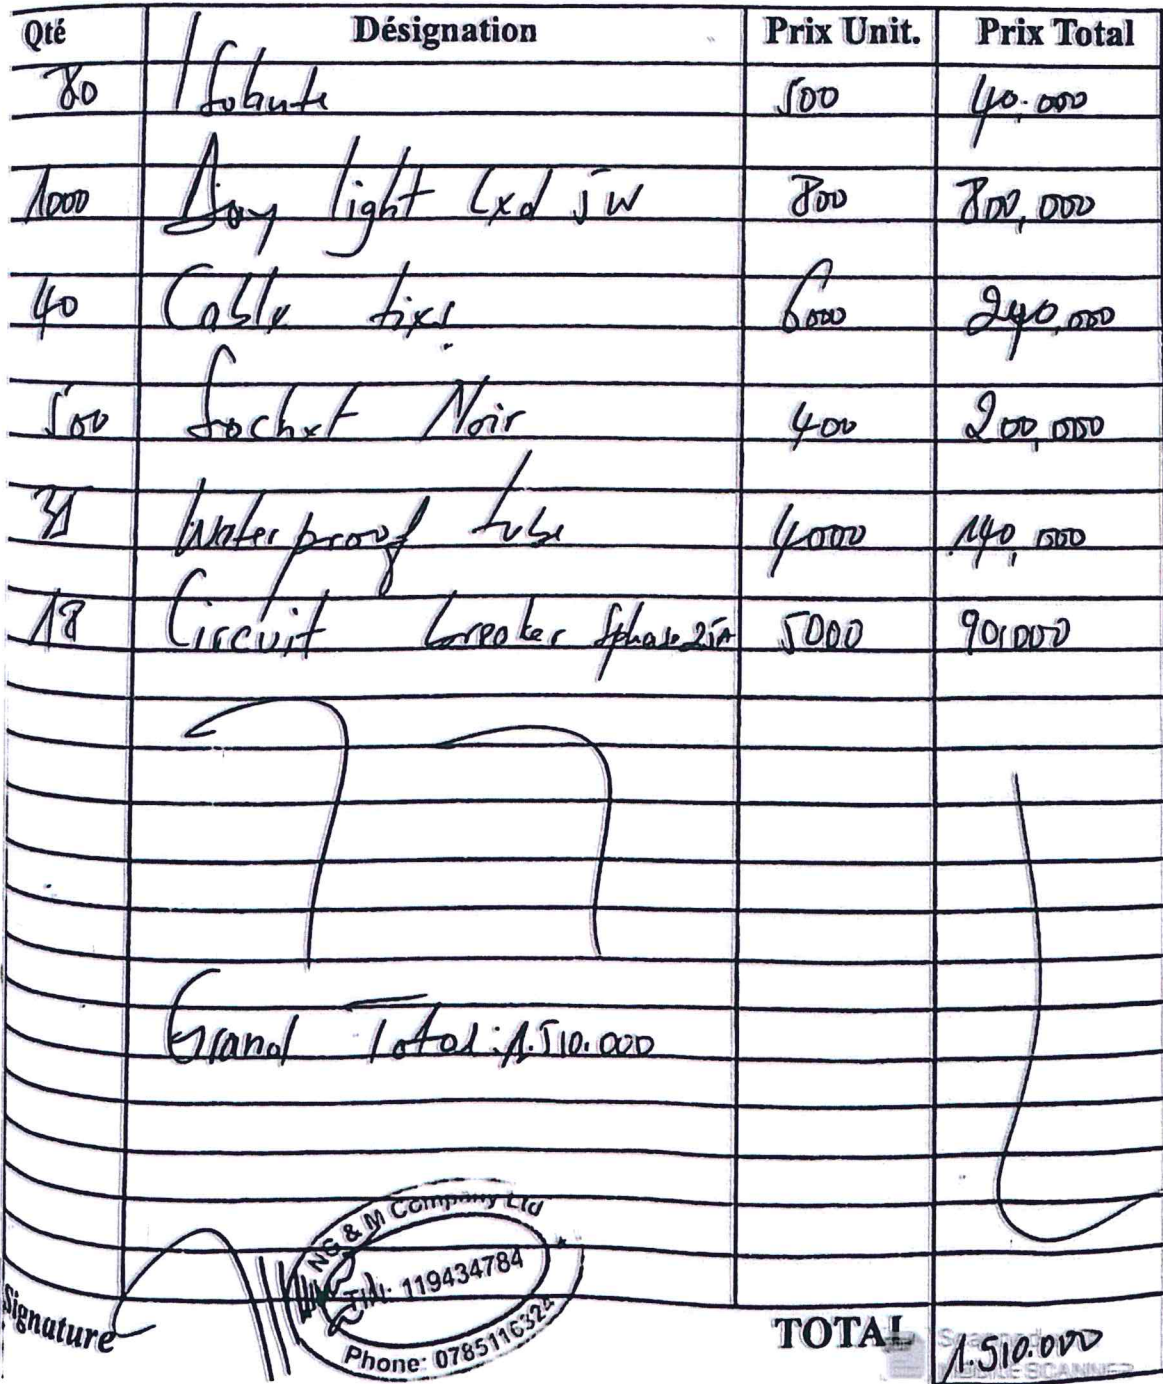 Qté Désignation Prix Unit. Prix Total
80 Isolante 500 40.000
1000 Day light Led 5W 800 800,000
40 Cable ties 6000 240,000
500 Sachet Noir 400 200,000
Waterproof tube 4000 140,000
18 Circuit breaker 25A 5000 90,000
Grand Total: 1.510.000
NG & M Company Ltd
TIN: 119434784
Phone: 0785116324
Signature
TOTAL 1.510.000
Scanned
MOBILE SCANNER